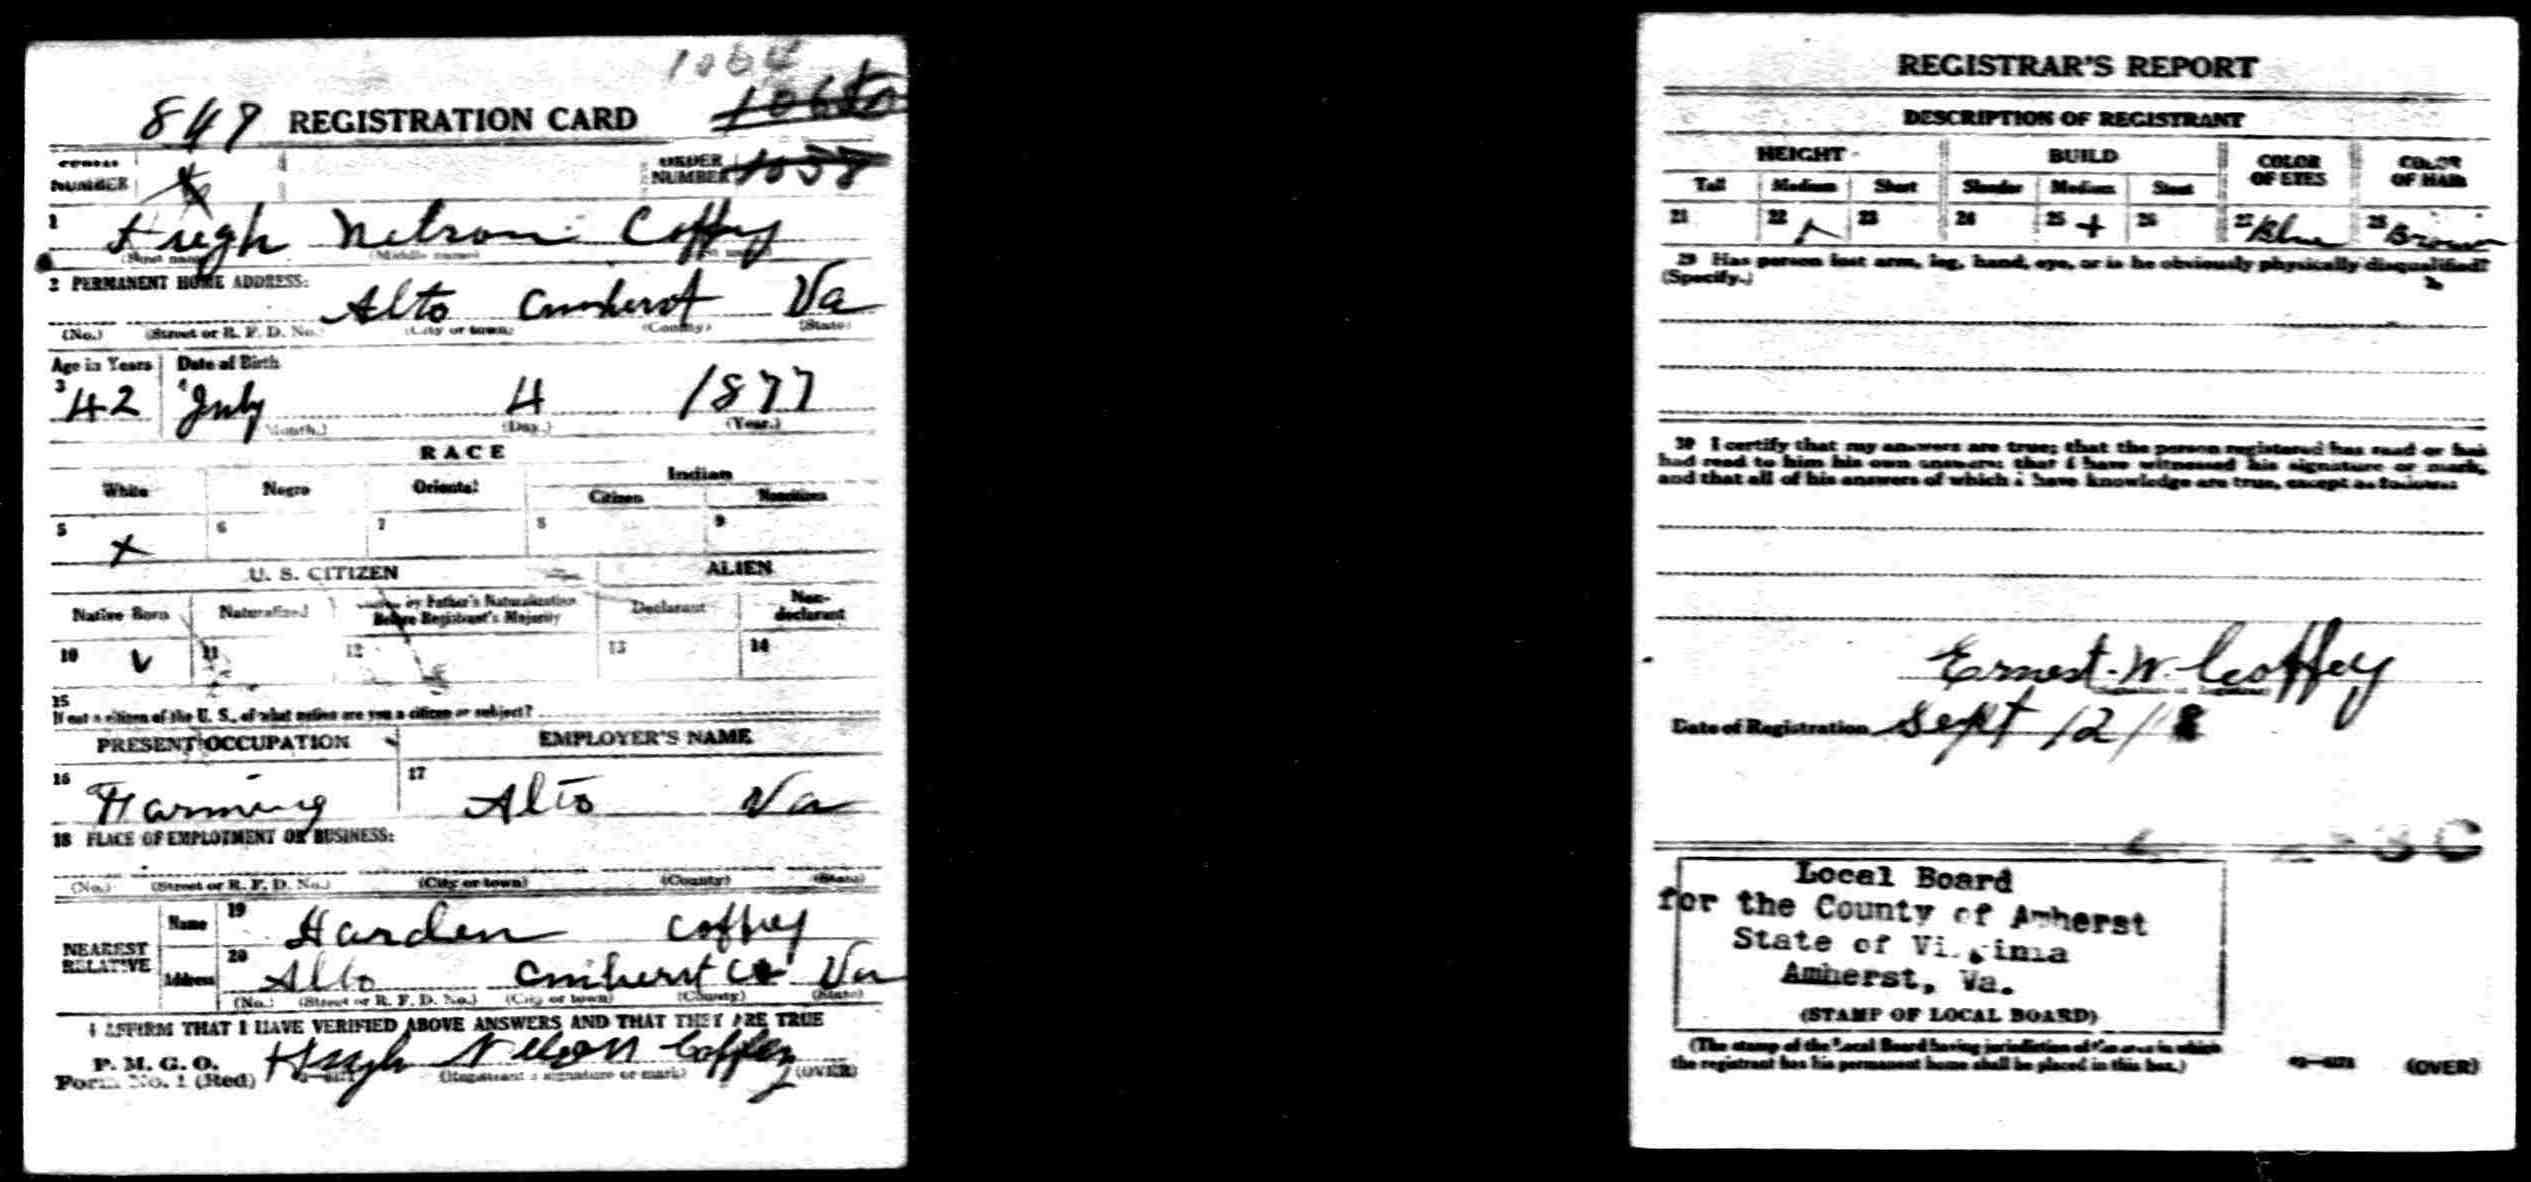 1064
847 REGISTRATION CARD
NUMBER
ORDER
NUMBER 1058
1 Hugh Nelson Coffey
(Middle name)
2 PERMANENT HOME ADDRESS:
Alto Amherst Va
(No.) (Street or R. F. D. No.) (City or town) (County) (State)
Age in Years Date of Birth
3 42 4 July 4 1877
(Month.) (Day.) (Year.)
RACE
White Negro Oriental Indian
Citizen Noncitizen
5 X 6 7 8 9
U. S. CITIZEN ALIEN
Native Born Naturalized by Father's Naturalization Before Registrant's Majority Declarant Non-declarant
10 11 12 13 14
15
If not a citizen of the U. S., of what nation are you a citizen or subject?
PRESENT OCCUPATION EMPLOYER'S NAME
16 Farming 17 Alto Va
18 PLACE OF EMPLOYMENT OR BUSINESS:
(No.) (Street or R. F. D. No.) (City or town) (County) (State)
NEAREST RELATIVE
Name 19 Harden Coffey
Address 20 Alto Amherst Co Va
(No.) (Street or R. F. D. No.) (City or town) (County) (State)
I AFFIRM THAT I HAVE VERIFIED ABOVE ANSWERS AND THAT THEY ARE TRUE
P. M. G. O.
Form No. 1 (Red) Hugh Nelson Coffey
(Registrant's signature or mark) (OVER)
REGISTRAR'S REPORT
DESCRIPTION OF REGISTRANT
HEIGHT BUILD COLOR OF EYES COLOR OF HAIR
Tall Medium Short Slender Medium Stout
21 22 23 24 25 + 26 27 Blue 28 Brown
29 Has person lost arm, leg, hand, eye, or is he obviously physically disqualified?
(Specify.)
30 I certify that my answers are true; that the person registered has read or has
had read to him his own answers; that I have witnessed his signature or mark,
and that all of his answers of which I have knowledge are true, except as follows:
Ernest W Coffey
Date of Registration Sept 12/18
Local Board
for the County of Amherst
State of Virginia
Amherst, Va.
(STAMP OF LOCAL BOARD)
(The stamp of the Local Board having jurisdiction of the area in which
the registrant has his permanent home shall be placed in this box.)
(OVER)